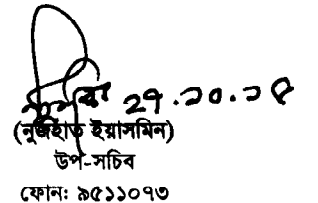 ২৭.১০.১৫
(নুজহাত ইয়াসমিন)
উপ-সচিব
ফোন: ৯৫১১০৭৩